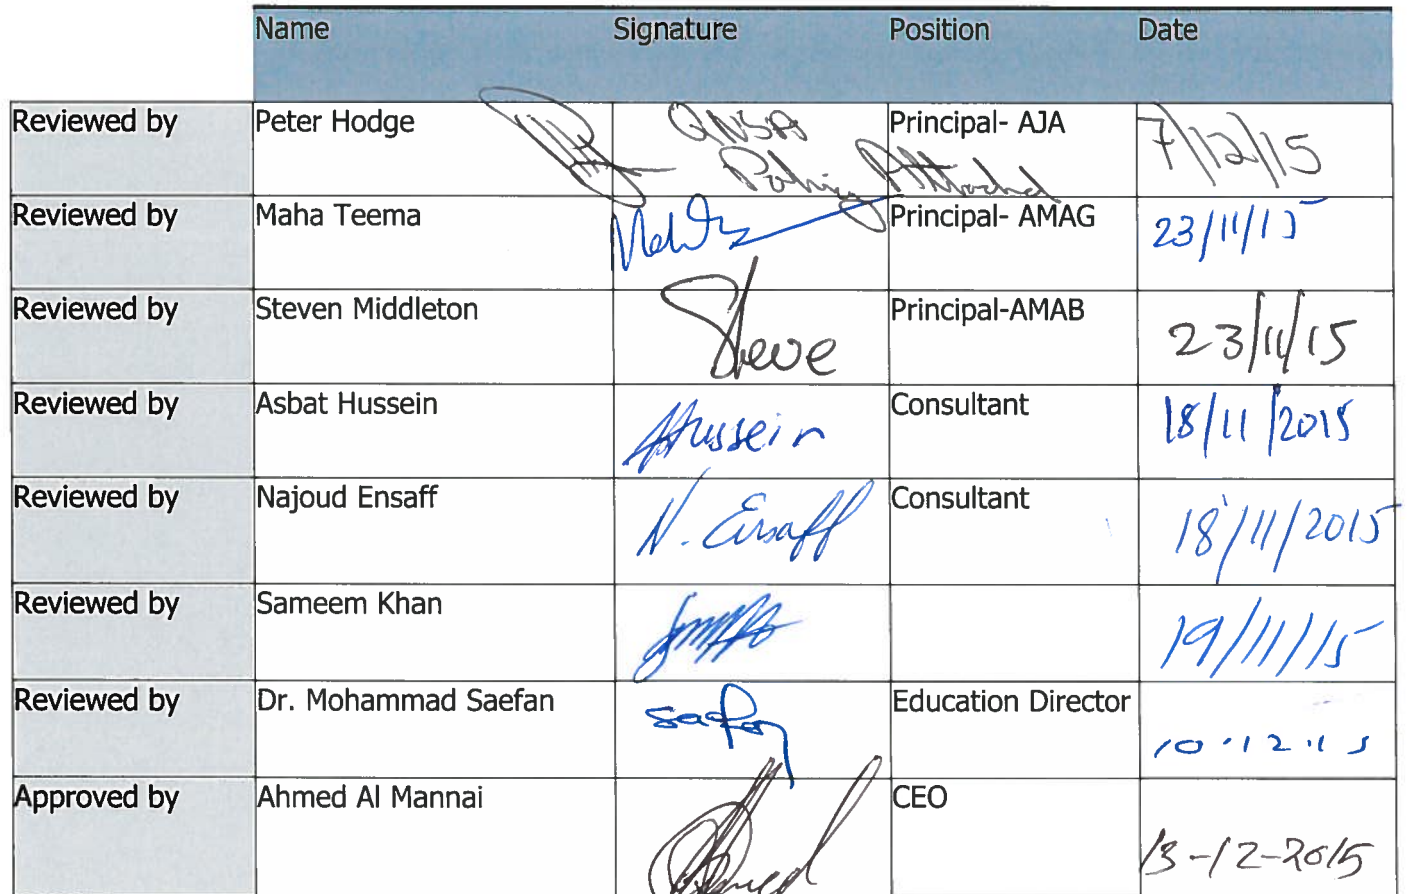 Name Signature Position Date
Reviewed by Peter Hodge QNSA Principal- AJA 7/12/15
Policy Attached
Reviewed by Maha Teema Principal- AMAG 23/11/15
Reviewed by Steven Middleton Steve Principal-AMAB 23/11/15
Reviewed by Asbat Hussein Hussein Consultant 18/11/2015
Reviewed by Najoud Ensaff N. Ensaff Consultant 18/11/2015
Reviewed by Sameem Khan 19/11/15
Reviewed by Dr. Mohammad Saefan Education Director 10.12.15
Approved by Ahmed Al Mannai CEO 13-12-2015